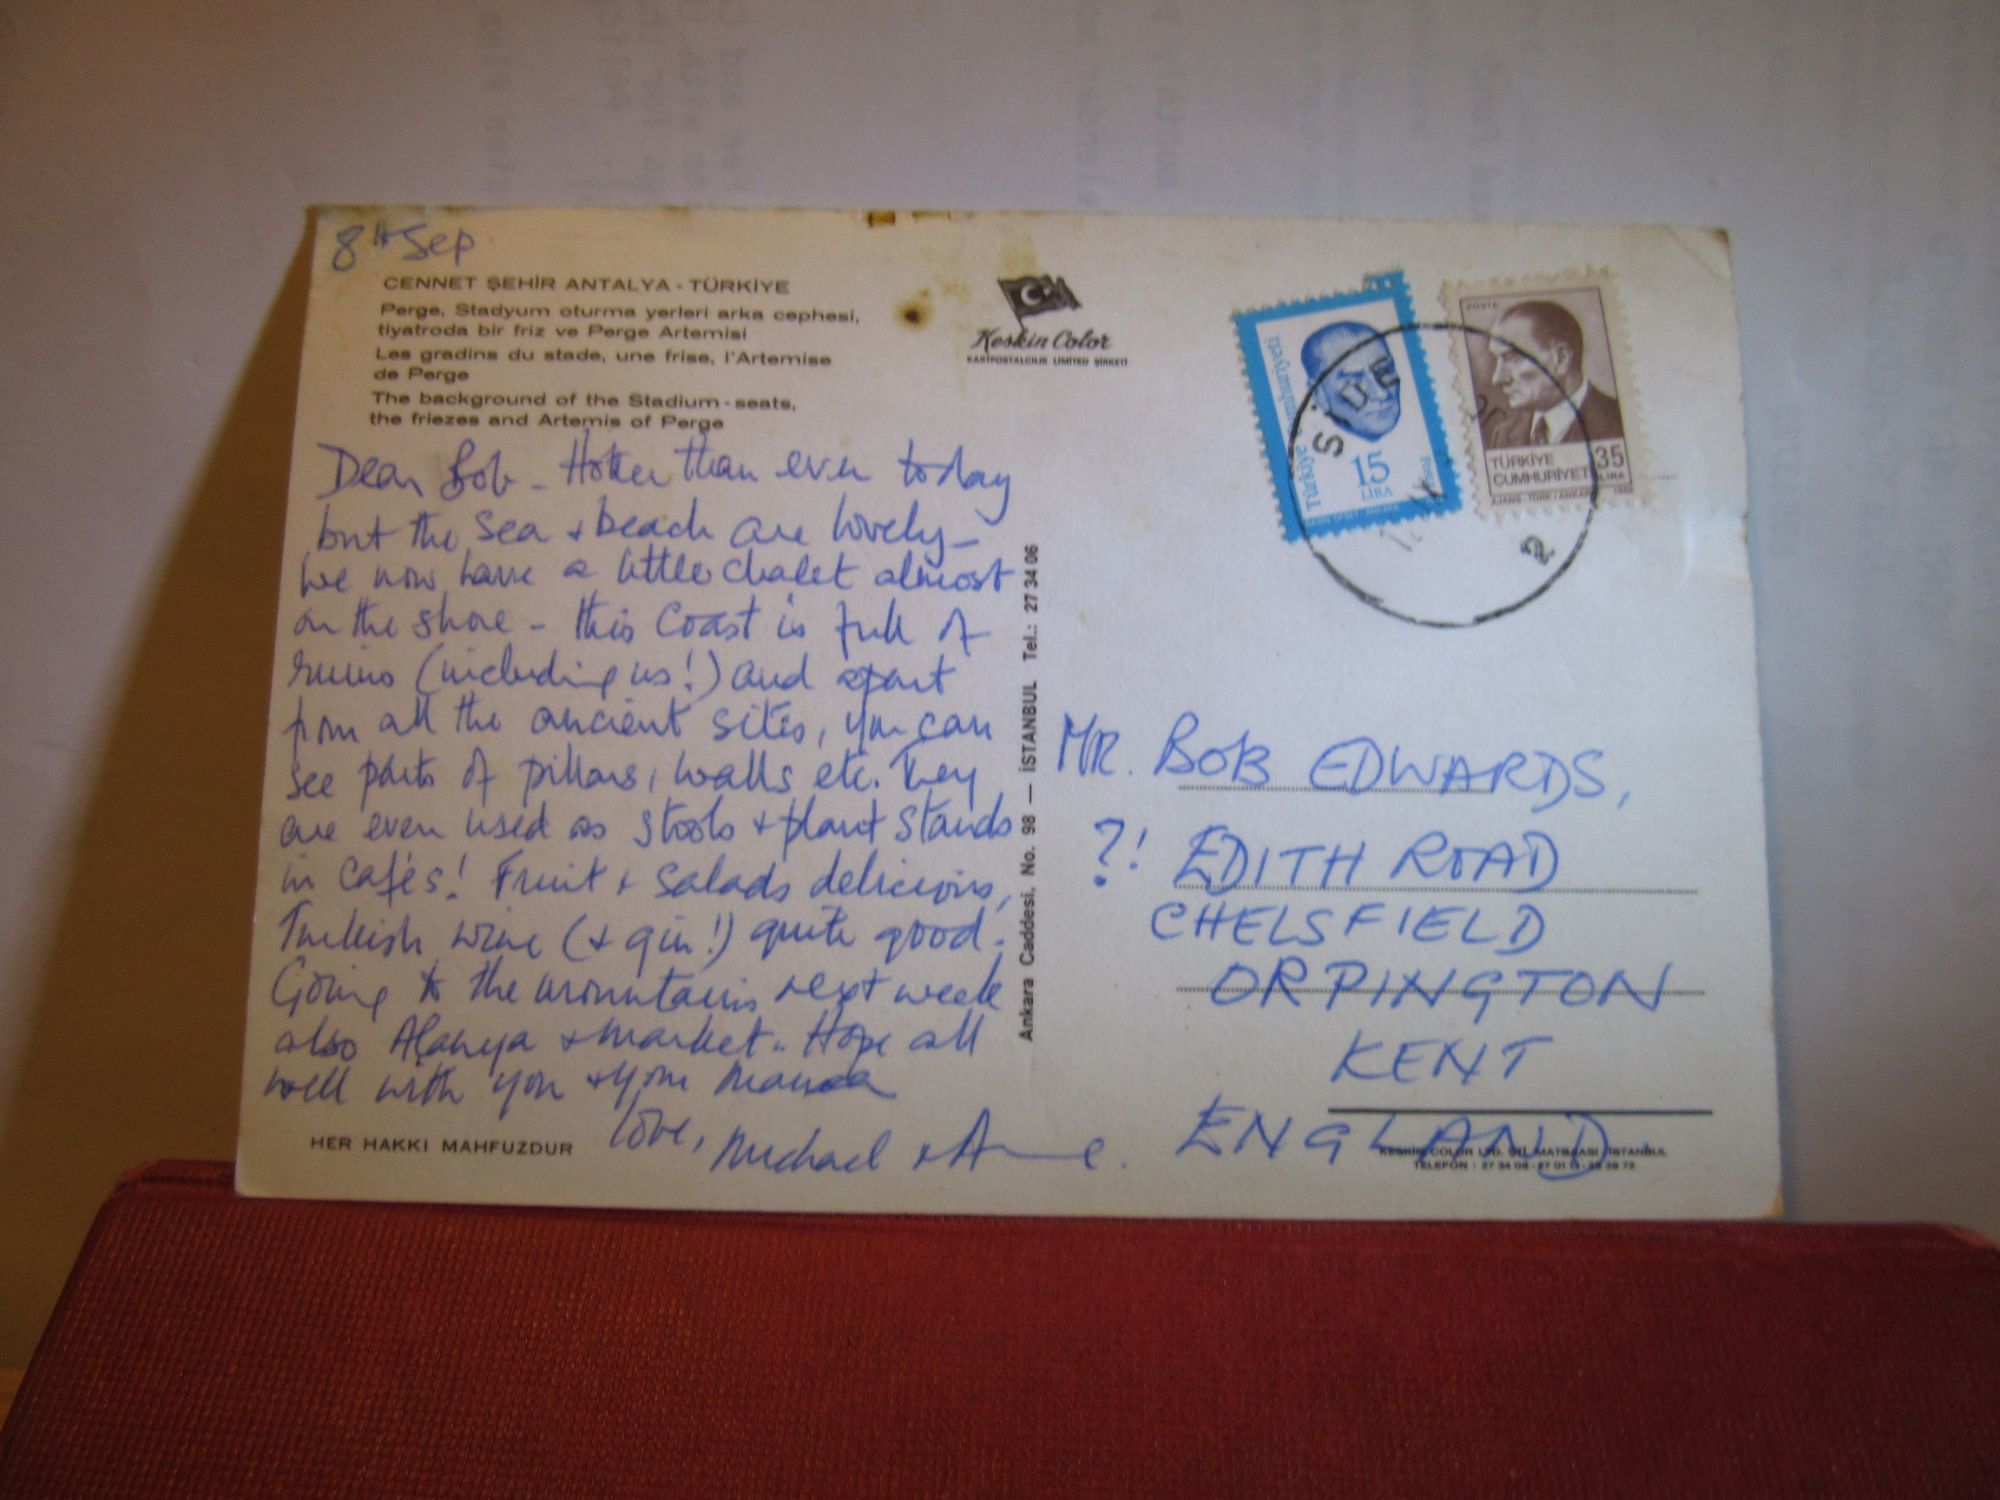 8th Sep
CENNET ŞEHİR ANTALYA - TÜRKİYE
Perge, Stadyum oturma yerleri arka cephesi,
tiyatroda bir friz ve Perge Artemisi
Les gradins du stade, une frise, l'Artemise
de Perge
The background of the Stadium - seats,
the friezes and Artemis of Perge
Dear Bob - Hotter than ever today
but the sea + beach are lovely -
we now have a little chalet almost
on the shore - this coast is full of
ruins (including us!) and apart
from all the ancient sites, you can
see parts of pillars, walls etc. They
are even used as stools + plant stands
in cafés! Fruit + salads delicious,
Turkish wine (+ gin!) quite good.
Going to the mountains next week
also Alanya + market.. Hope all
well with you + your
love, Michael + Anne.
HER HAKKI MAHFUZDUR
Keskin Color
KARTPOSTALCILIK LIMITED ŞİRKETİ
Ankara Caddesi. No. 98 — İSTANBUL Tel.: 27 34 06
Türkiye Cumhuriyeti
15
LİRA
POSTA
35
LİRA
TÜRKİYE
CUMHURİYETİ
AJANS - TÜRK / ANKARA
SİDE
2
MR. BOB EDWARDS,
?! EDITH ROAD
CHELSFIELD
ORPINGTON
KENT
ENGLAND
KESKİN COLOR LTD. ŞTİ. MATBAASI İSTANBUL
TELEFON : 27 34 06 - 27 01 13